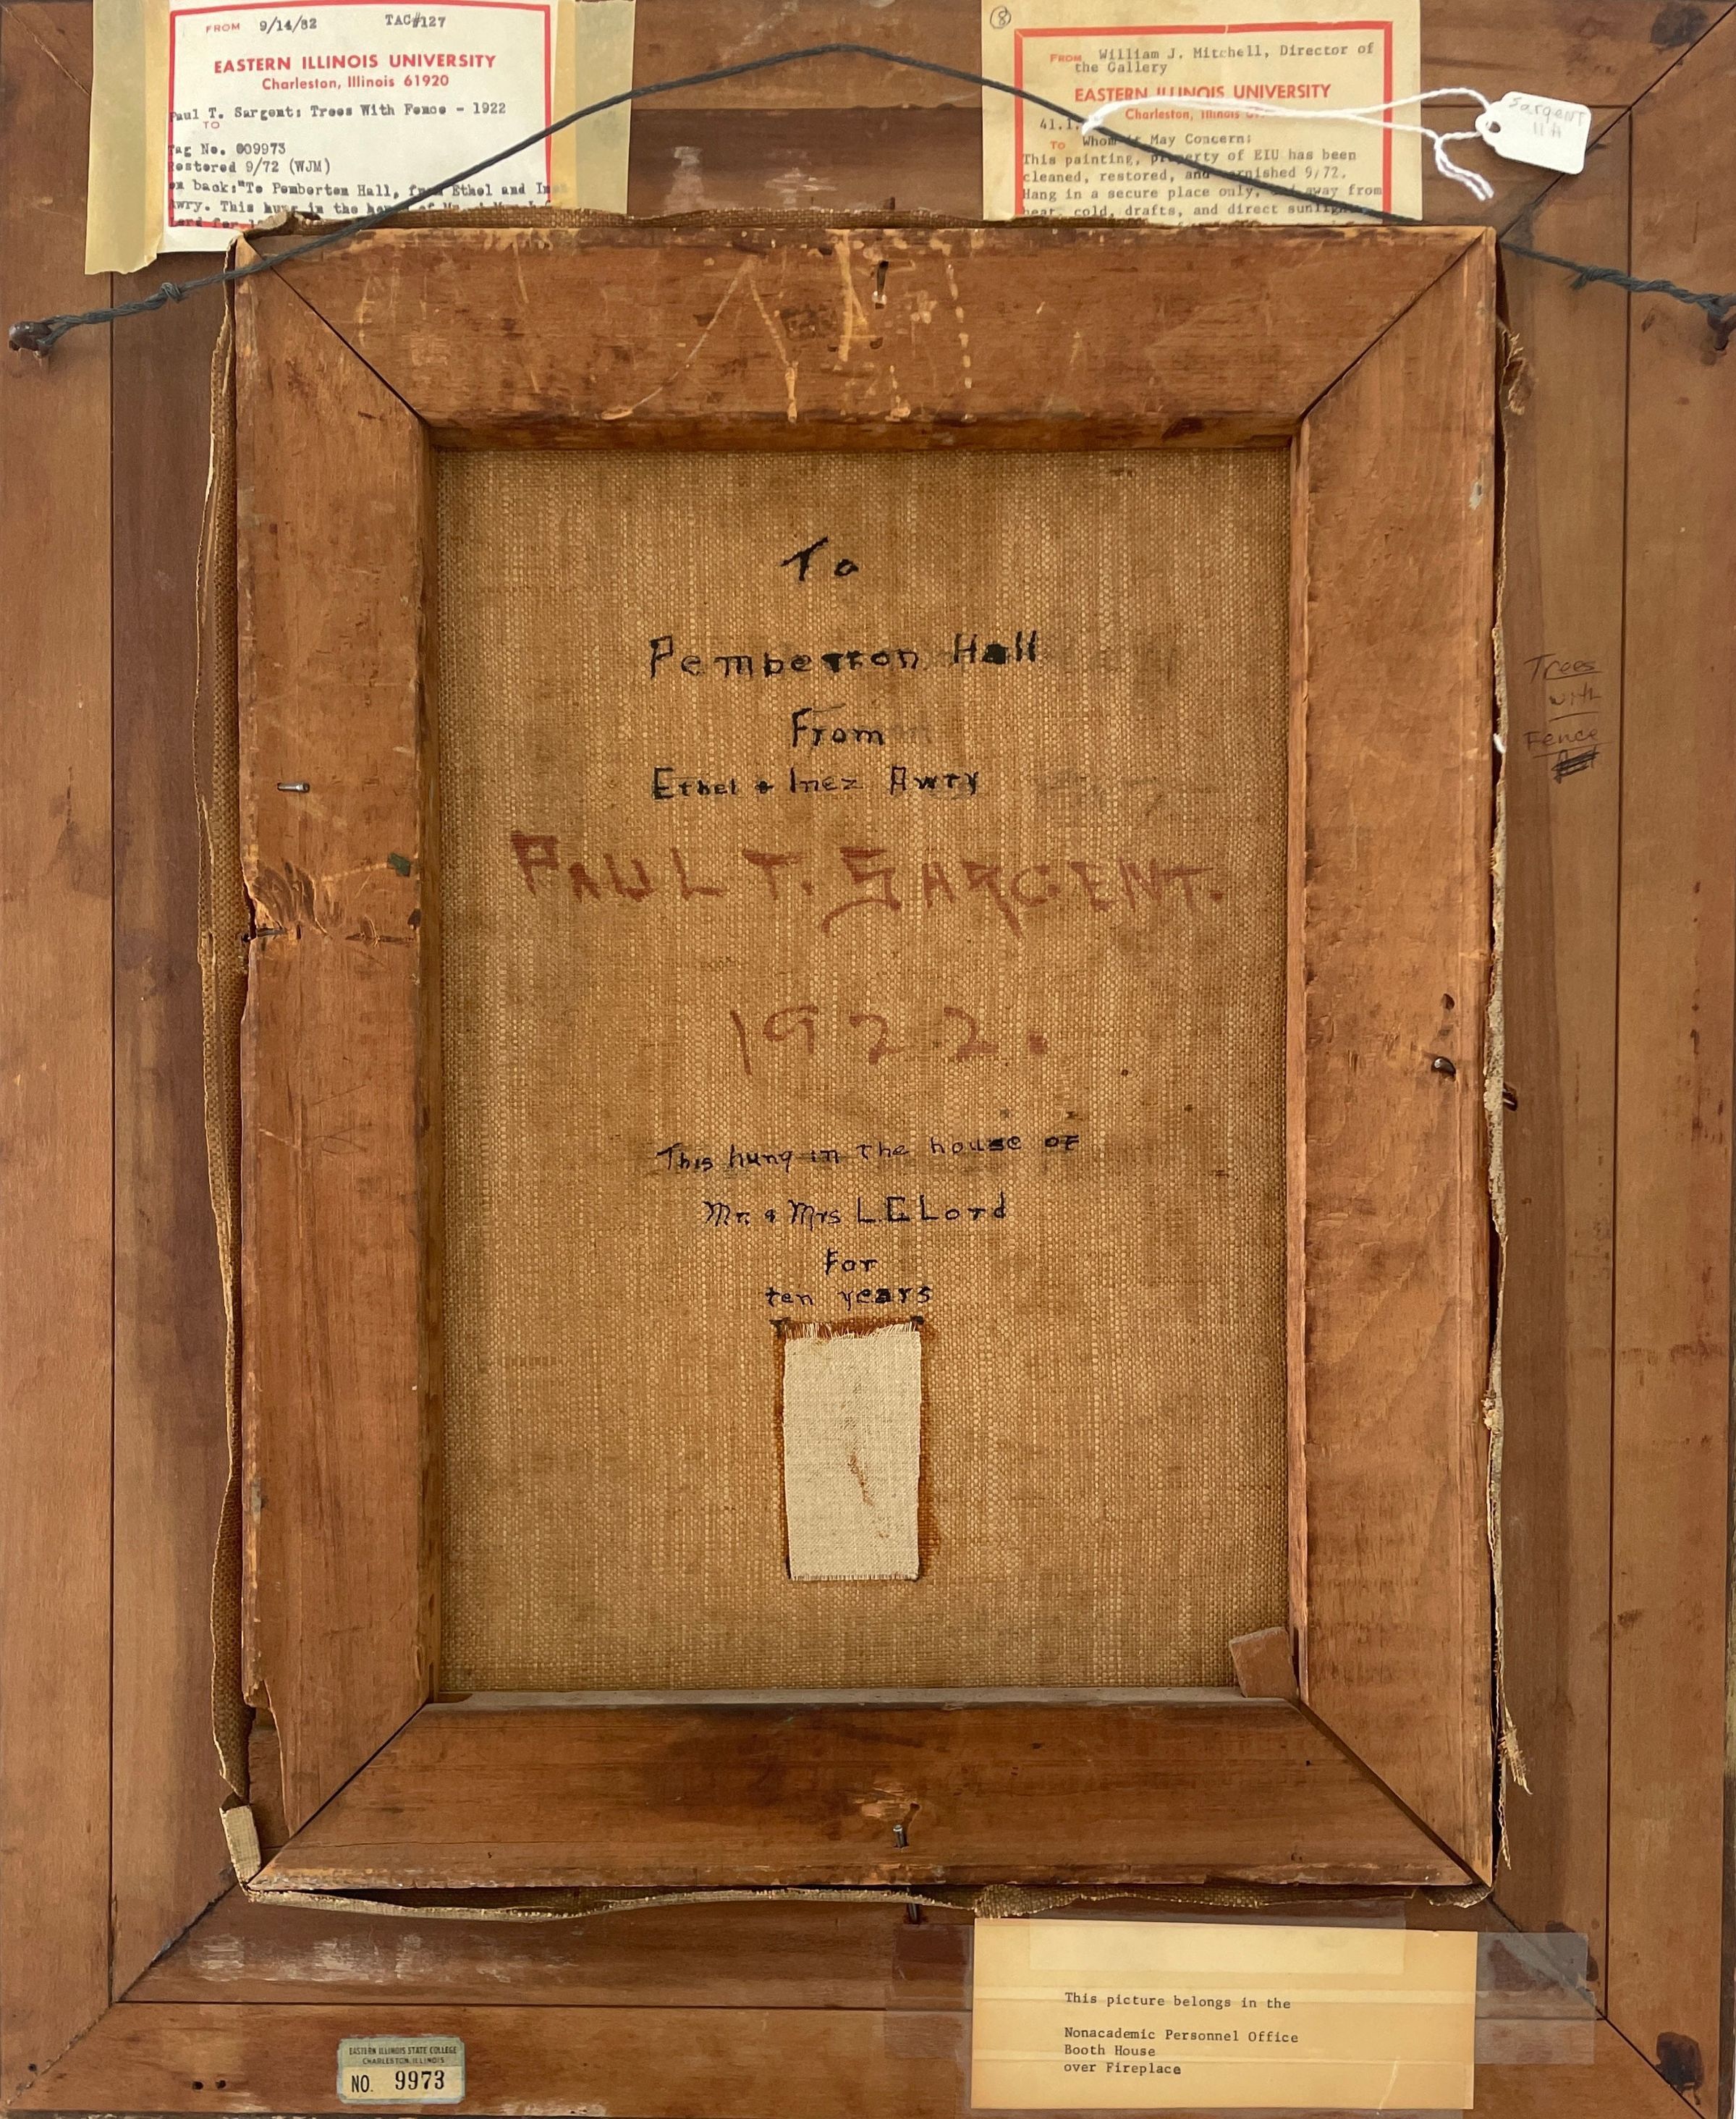 FROM 9/14/82 TAC#127
EASTERN ILLINOIS UNIVERSITY
Charleston, Illinois 61920
Paul T. Sargent: Trees With Fence - 1922
TO
Tag No. 009973
Restored 9/72 (WJM)
on back:"To Pemberton Hall, from Ethel and
Awry. This hung in the of
8
FROM William J. Mitchell, Director of
the Gallery
EASTERN ILLINOIS UNIVERSITY
Charleston, Illinois
41.1.
TO Whom it May Concern:
This painting, property of EIU has been
cleaned, restored, and varnished 9/72.
Hang in a secure place only, and away from
cold, drafts, and direct sunlight,
Sargent
11A
To
Pemberton Hall
From
Ethel + Inez Awry
PAUL T. SARGENT.
1922.
This hung in the house of
Mr. & Mrs L.E Lord
For
ten years
Trees
with
Fence
This picture belongs in the
Nonacademic Personnel Office
Booth House
over Fireplace
EASTERN ILLINOIS STATE COLLEGE
CHARLESTON, ILLINOIS
NO. 9973